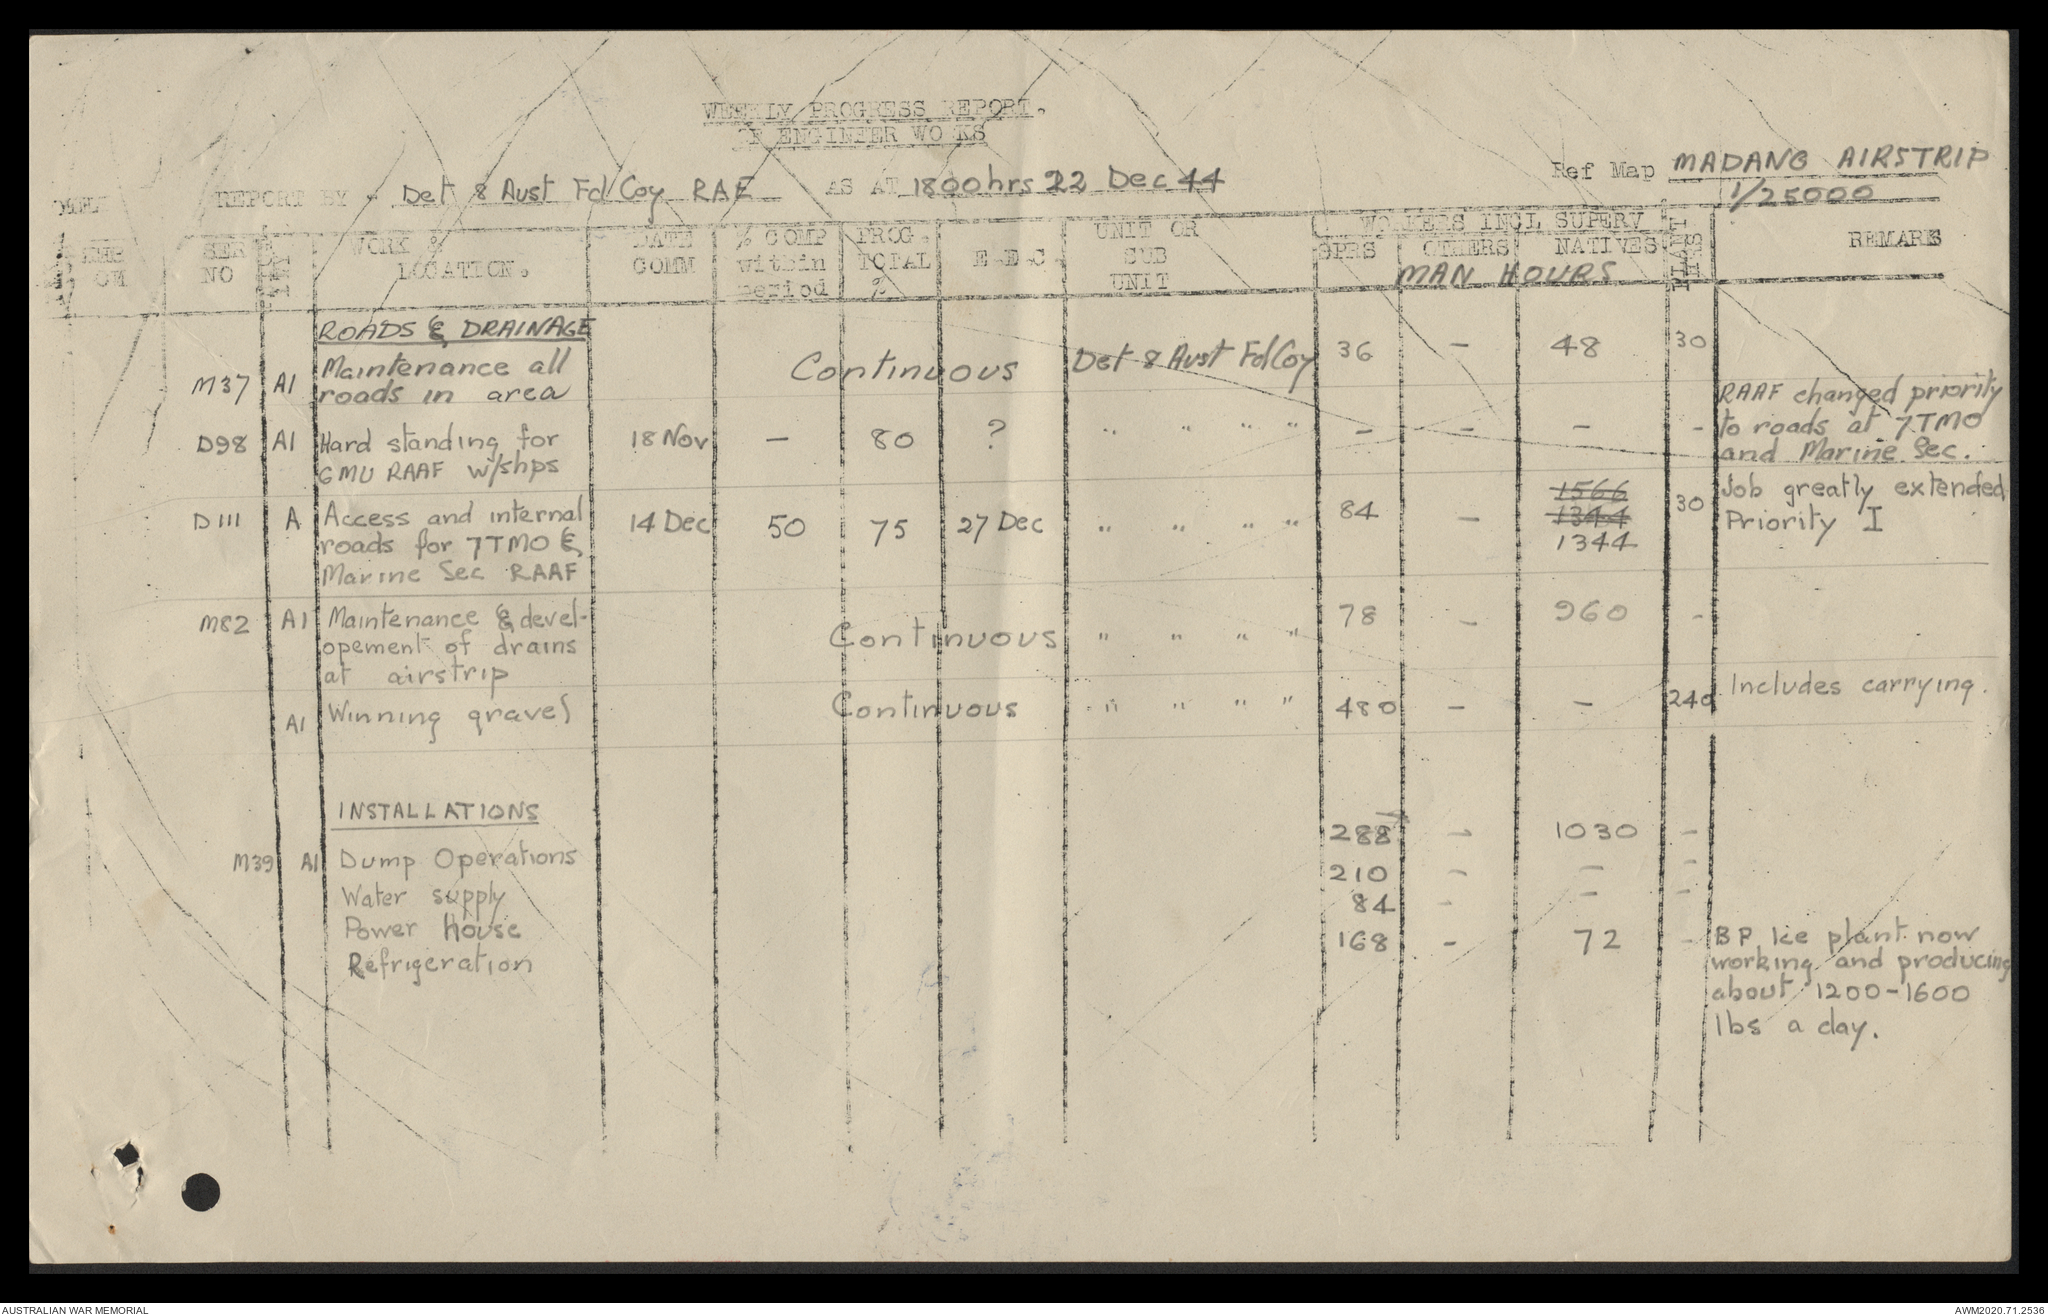 WEEKLY PROGRESS REPORT.
OF ENGINEER WO KS
Ref Map MADANG AIRSTRIP
1/25000
REPORT BY - Det 8 Aust Fd Coy RAE AS AT 1800hrs 22 Dec 44
SER NO WORK & LOCATION. DATE COMM % COMP within period PROG. TOTAL % E.E.C. UNIT OR SUB UNIT WORKERS INCL SUPERV SPRS OTHERS NATIVES PLANT HRS REMARKS
MAN HOURS
ROADS & DRAINAGE
M37 A1 Maintenance all Continuous Det 8 Aust Fd Coy 36 - 48 30
roads in area
D98 A1 Hard standing for 18 Nov - 80 ? " " " " - - - - RAAF changed priority
GMU RAAF w/shps to roads at 7TMO
and Marine Sec.
D111 A Access and internal 14 Dec 50 75 27 Dec " " " " 84 - 1566 30 Job greatly extended
roads for 7TMO & 1344 Priority I
Marine Sec RAAF 1344
M82 A1 Maintenance & devel- Continuous " " " " 78 - 960 -
opement of drains
at airstrip
A1 Winning gravel Continuous " " " " 480 - - 240 Includes carrying.
INSTALLATIONS
M39 A1 Dump Operations 288 - 1030 -
Water supply 210 - - -
Power House 84 - - -
Refrigeration 168 - 72 - BP Ice plant now
working and producing
about 1200-1600
lbs a day.
AUSTRALIAN WAR MEMORIAL
AWM2020.71.2536